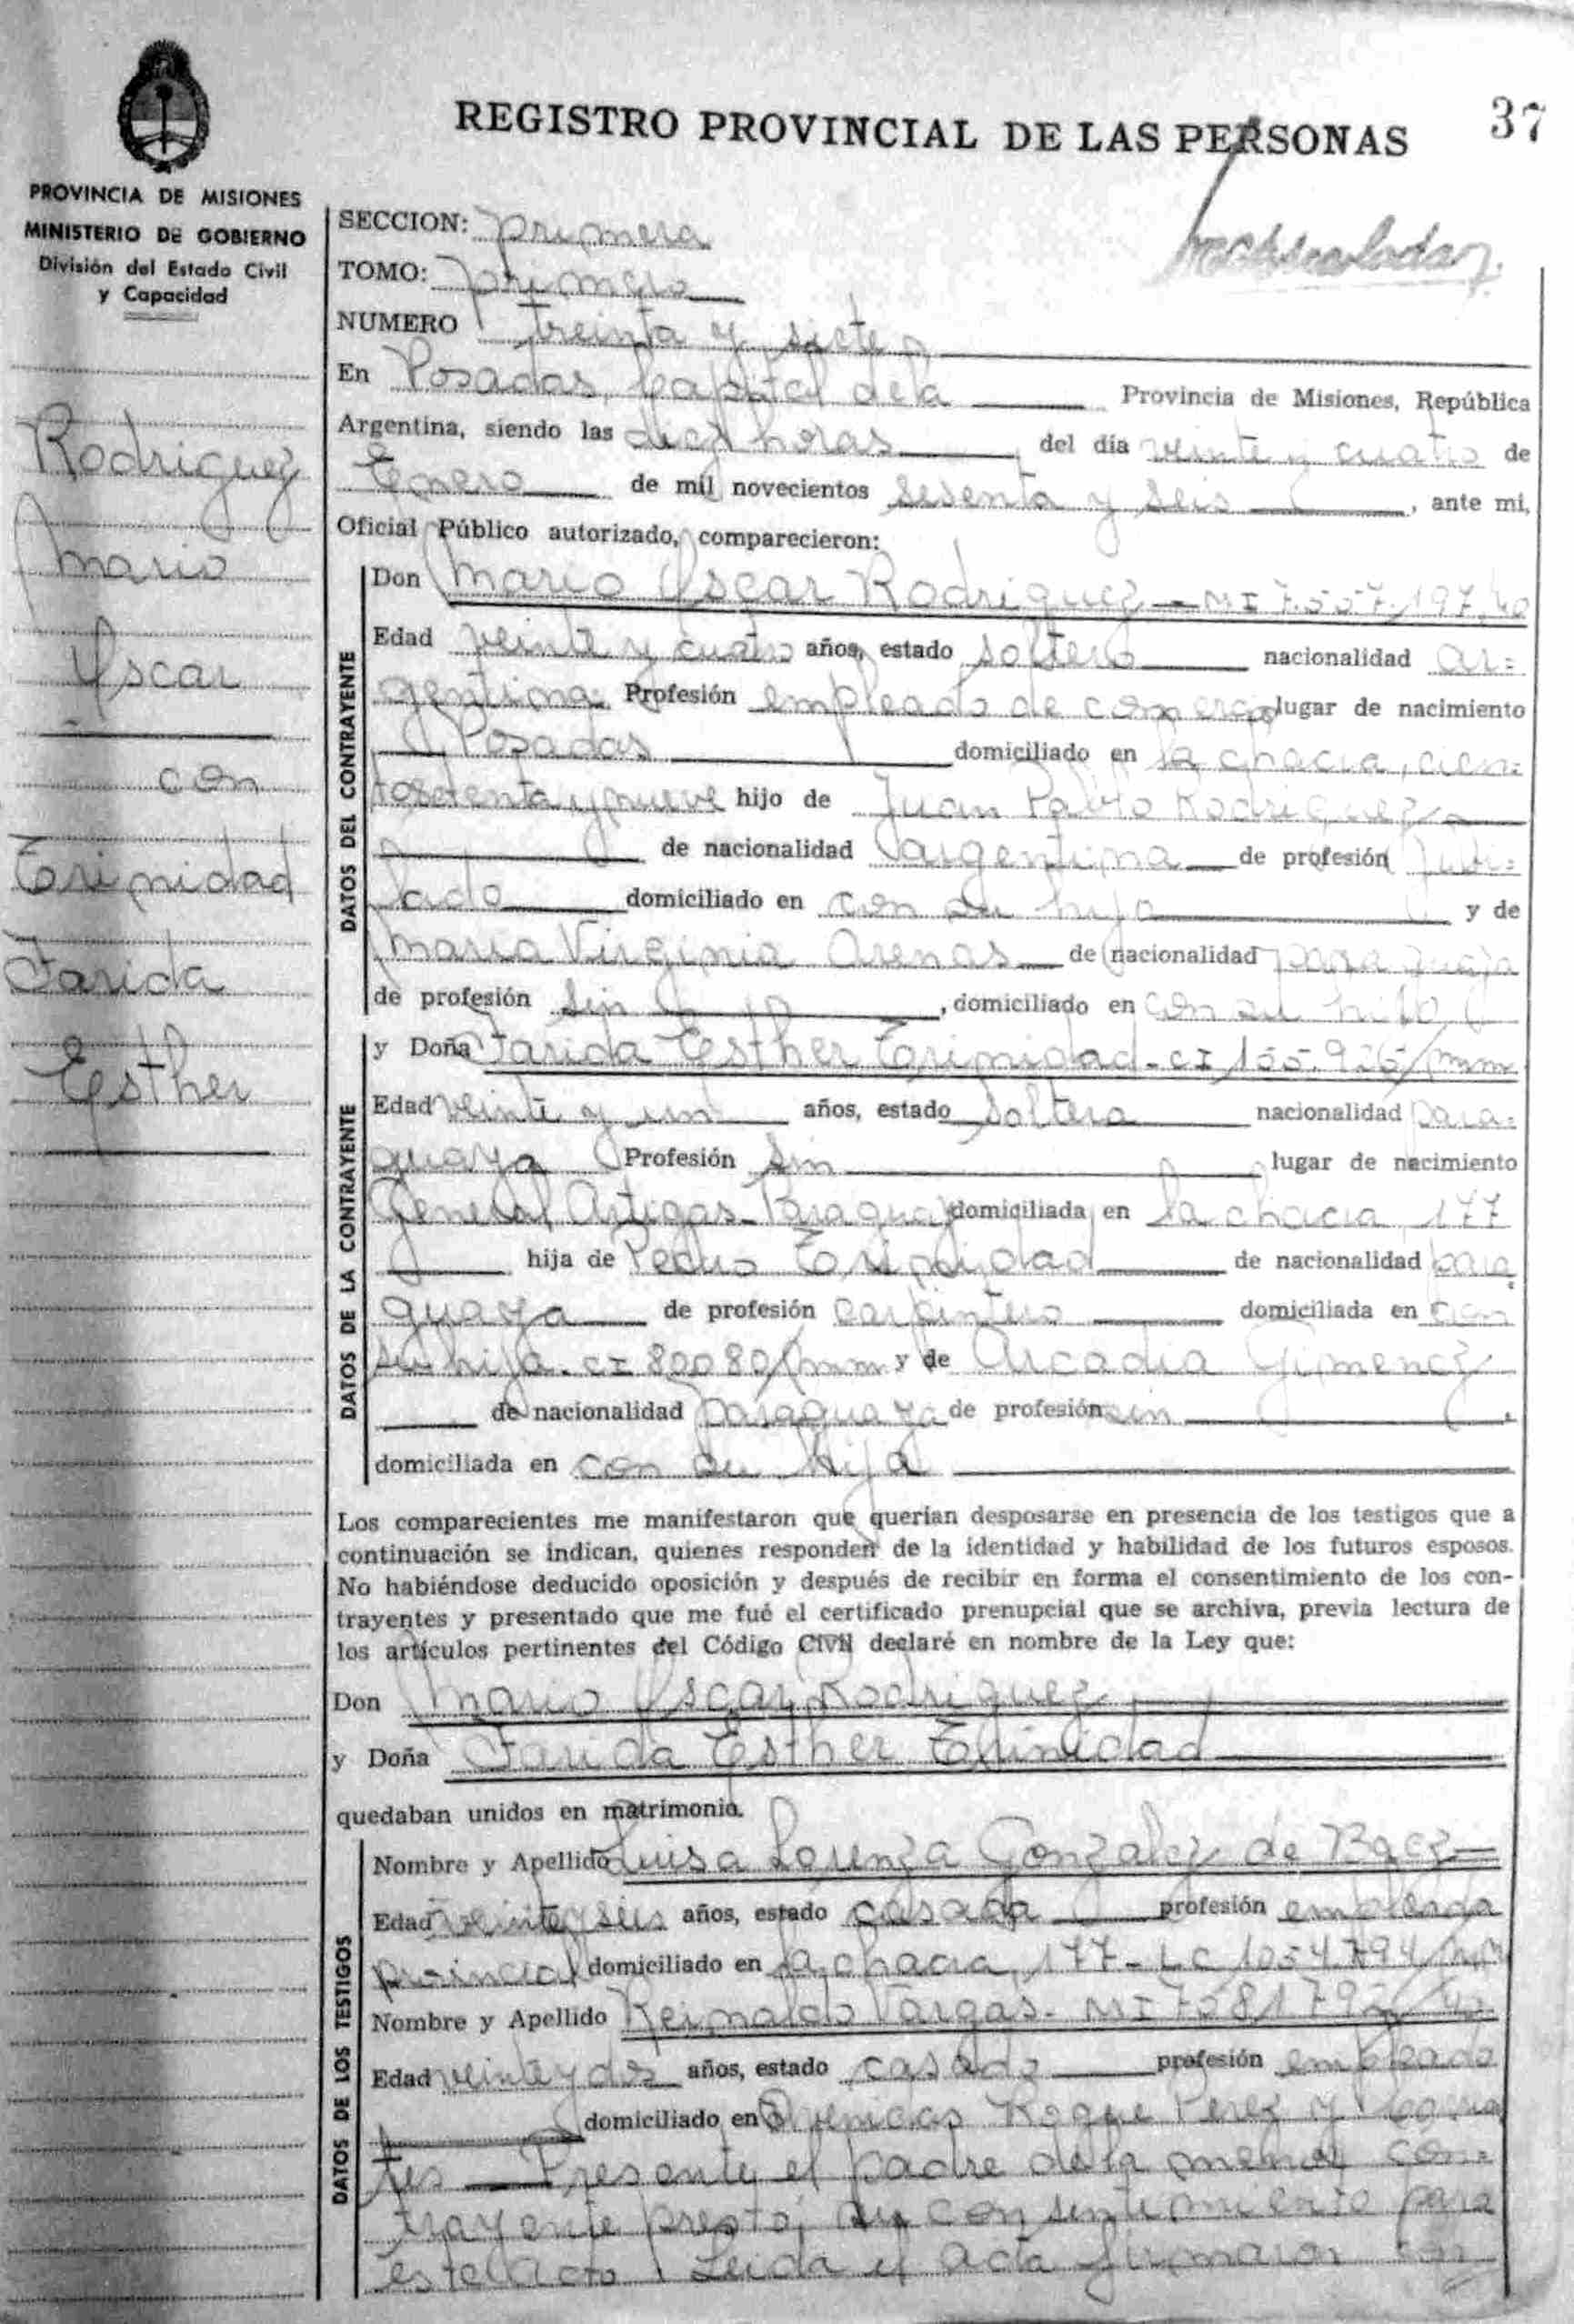 37
REGISTRO PROVINCIAL DE LAS PERSONAS
PROVINCIA DE MISIONES
MINISTERIO DE GOBIERNO
División del Estado Civil
y Capacidad
Rodriguez
Mario
Oscar
con
Trinidad
Farida
Esther
SECCION: primera
TOMO: primero
NUMERO treinta y siete
En Posadas, Capital de la Provincia de Misiones, República
Argentina, siendo las diez horas del día veinte y cuatro de
Enero de mil novecientos sesenta y seis, ante mi,
Oficial Público autorizado, comparecieron:
DATOS DEL CONTRAYENTE
Don Mario Oscar Rodriguez - MI 7.557.197
Edad veinte y cuatro años, estado soltero nacionalidad ar=
gentina Profesión empleado de comercio lugar de nacimiento
Posadas domiciliado en la chacra, cien=
to setenta y nueve hijo de Juan Pablo Rodriguez
de nacionalidad argentina de profesión jubi=
lado domiciliado en con su hijo y de
Maria Virginia Arenas de nacionalidad paraguaya
de profesión sin, domiciliado en con su hijo
DATOS DE LA CONTRAYENTE
y Doña Farida Esther Trinidad - CI 155.926/mm
Edad veinte y un años, estado soltera nacionalidad para=
guaya Profesión sin lugar de nacimiento
General Artigas - Paraguay domiciliada en la chacra, 177
hija de Pedro Trinidad de nacionalidad para
guaya de profesión carpintero domiciliada en con
su hija - CI 80080/mm y de Arcadia Gimenez
de nacionalidad paraguaya de profesión sin,
domiciliada en con su hija
Los comparecientes me manifestaron que querían desposarse en presencia de los testigos que a
continuación se indican, quienes responden de la identidad y habilidad de los futuros esposos.
No habiéndose deducido oposición y después de recibir en forma el consentimiento de los con-
trayentes y presentado que me fué el certificado prenupcial que se archiva, previa lectura de
los artículos pertinentes del Código Civil declaré en nombre de la Ley que:
Don Mario Oscar Rodriguez
y Doña Farida Esther Trinidad
quedaban unidos en matrimonio.
DATOS DE LOS TESTIGOS
Nombre y Apellido Luisa Lorenza Gonzalez de Baez
Edad veinte y seis años, estado casada profesión empleada
provincial domiciliado en la chacra, 177 - LC 1054794/mm
Nombre y Apellido Reinaldo Vargas - MI
Edad veinte y dos años, estado casado profesión empleado
domiciliado en Avenidas Roque Perez y Corrien
tes - Presente el padre de la menor con=
trayente prestó su consentimiento para
este acto. Leida el acta firmaron con